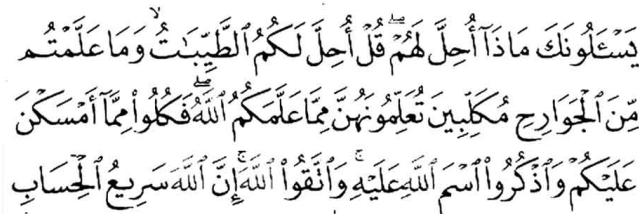 يَسْـَٔلُونَكَ مَاذَآ أُحِلَّ لَهُمْ ۖ قُلْ أُحِلَّ لَكُمُ ٱلطَّيِّبَـٰتُ ۙ وَمَا عَلَّمْتُم
مِّنَ ٱلْجَوَارِحِ مُكَلِّبِينَ تُعَلِّمُونَهُنَّ مِمَّا عَلَّمَكُمُ ٱللَّهُ ۖ فَكُلُوا۟ مِمَّآ أَمْسَكْنَ
عَلَيْكُمْ وَٱذْكُرُوا۟ ٱسْمَ ٱللَّهِ عَلَيْهِ ۚ وَٱتَّقُوا۟ ٱللَّهَ ۚ إِنَّ ٱللَّهَ سَرِيعُ ٱلْحِسَابِ